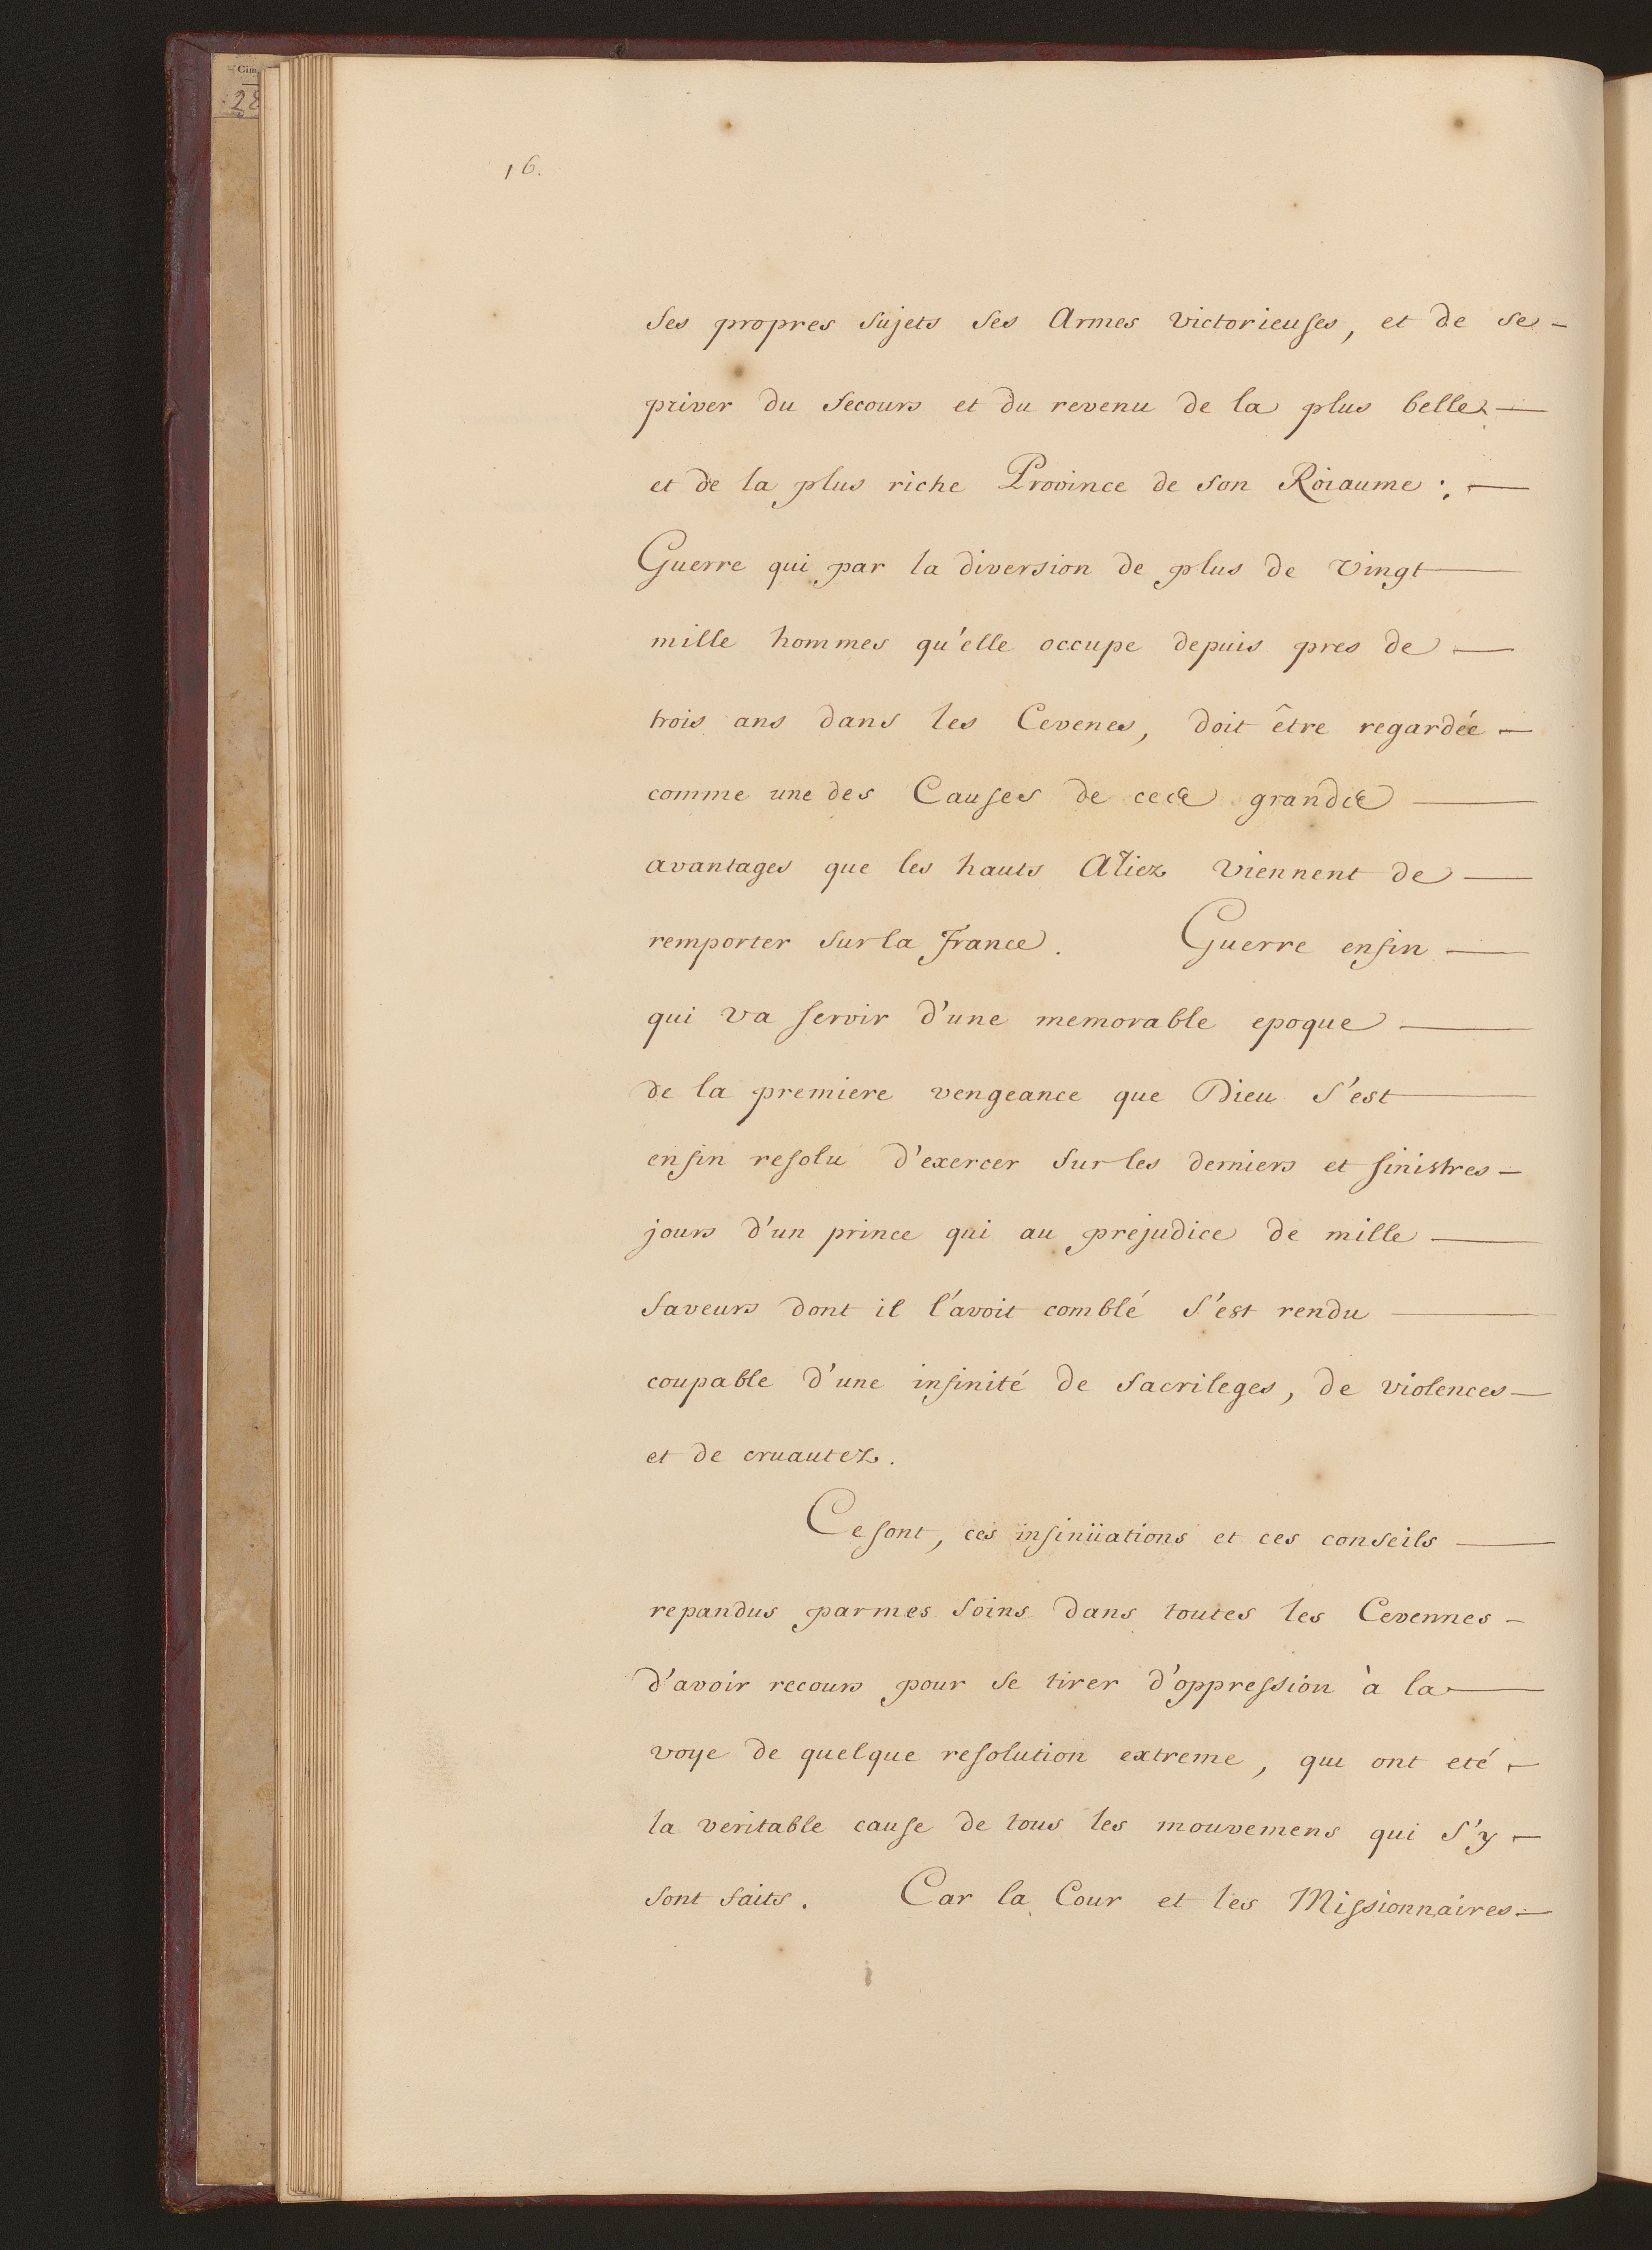 Cim.
28
16.
ses propres sujets ses Armes victorieuses, et de se -
priver du secours et du revenu de la plus belle —
et de la plus riche Province de son Roiaume : —
Guerre qui par la diversion de plus de vingt —
mille hommes qu'elle occupe depuis pres de —
trois ans dans les Cevenes, doit être regardée —
comme une des Causes de ces grands —
avantages que les hauts Aliez viennent de —
remporter sur la France. Guerre enfin —
qui va servir d'une memorable epoque —
de la premiere vengeance que Dieu s'est —
enfin resolu d'exercer sur les derniers et sinistres —
jours d'un prince qui au prejudice de mille —
faveurs dont il l'avoit comblé s'est rendu —
coupable d'une infinité de sacrileges, de violences —
et de cruautez.
Ce sont, ces insinüations et ces conseils —
repandus par mes soins dans toutes les Cevennes -
d'avoir recours pour se tirer d'oppression à la —
voye de quelque resolution extreme, qui ont eté —
la veritable cause de tous les mouvemens qui s'y —
sont faits. Car la Cour et les Missionnaires —